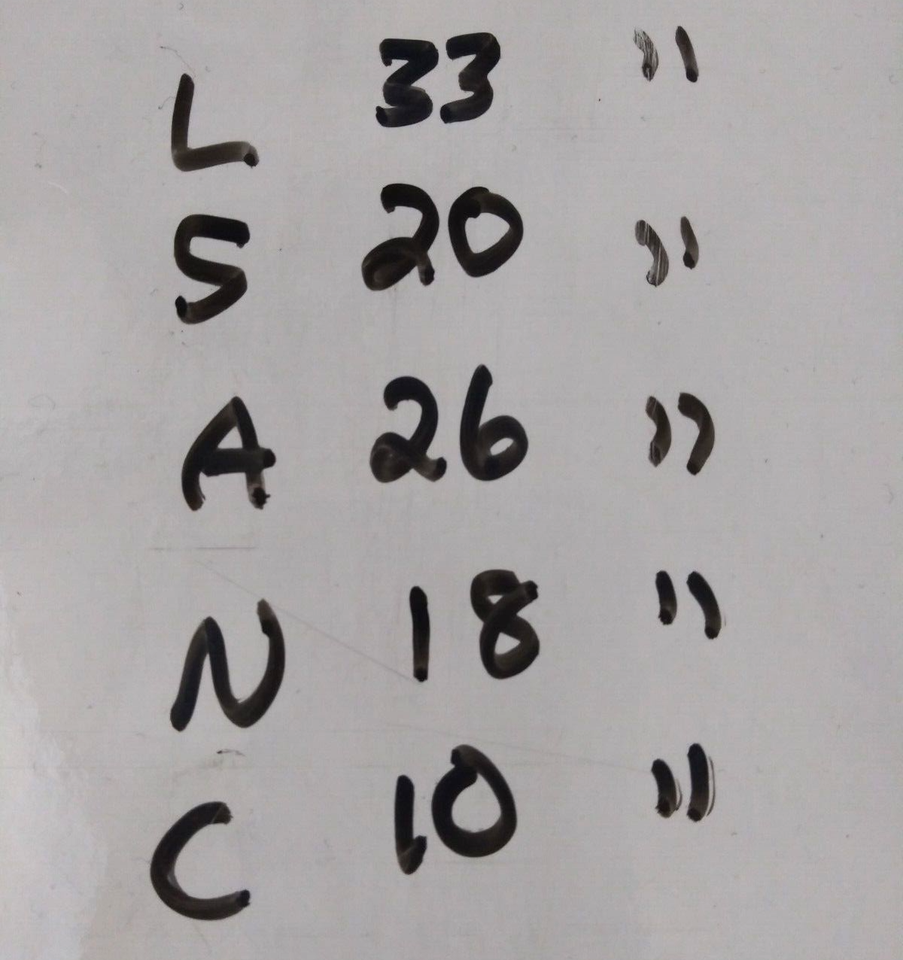 L 33 "
S 20 "
A 26 "
N 18 "
C 10 "